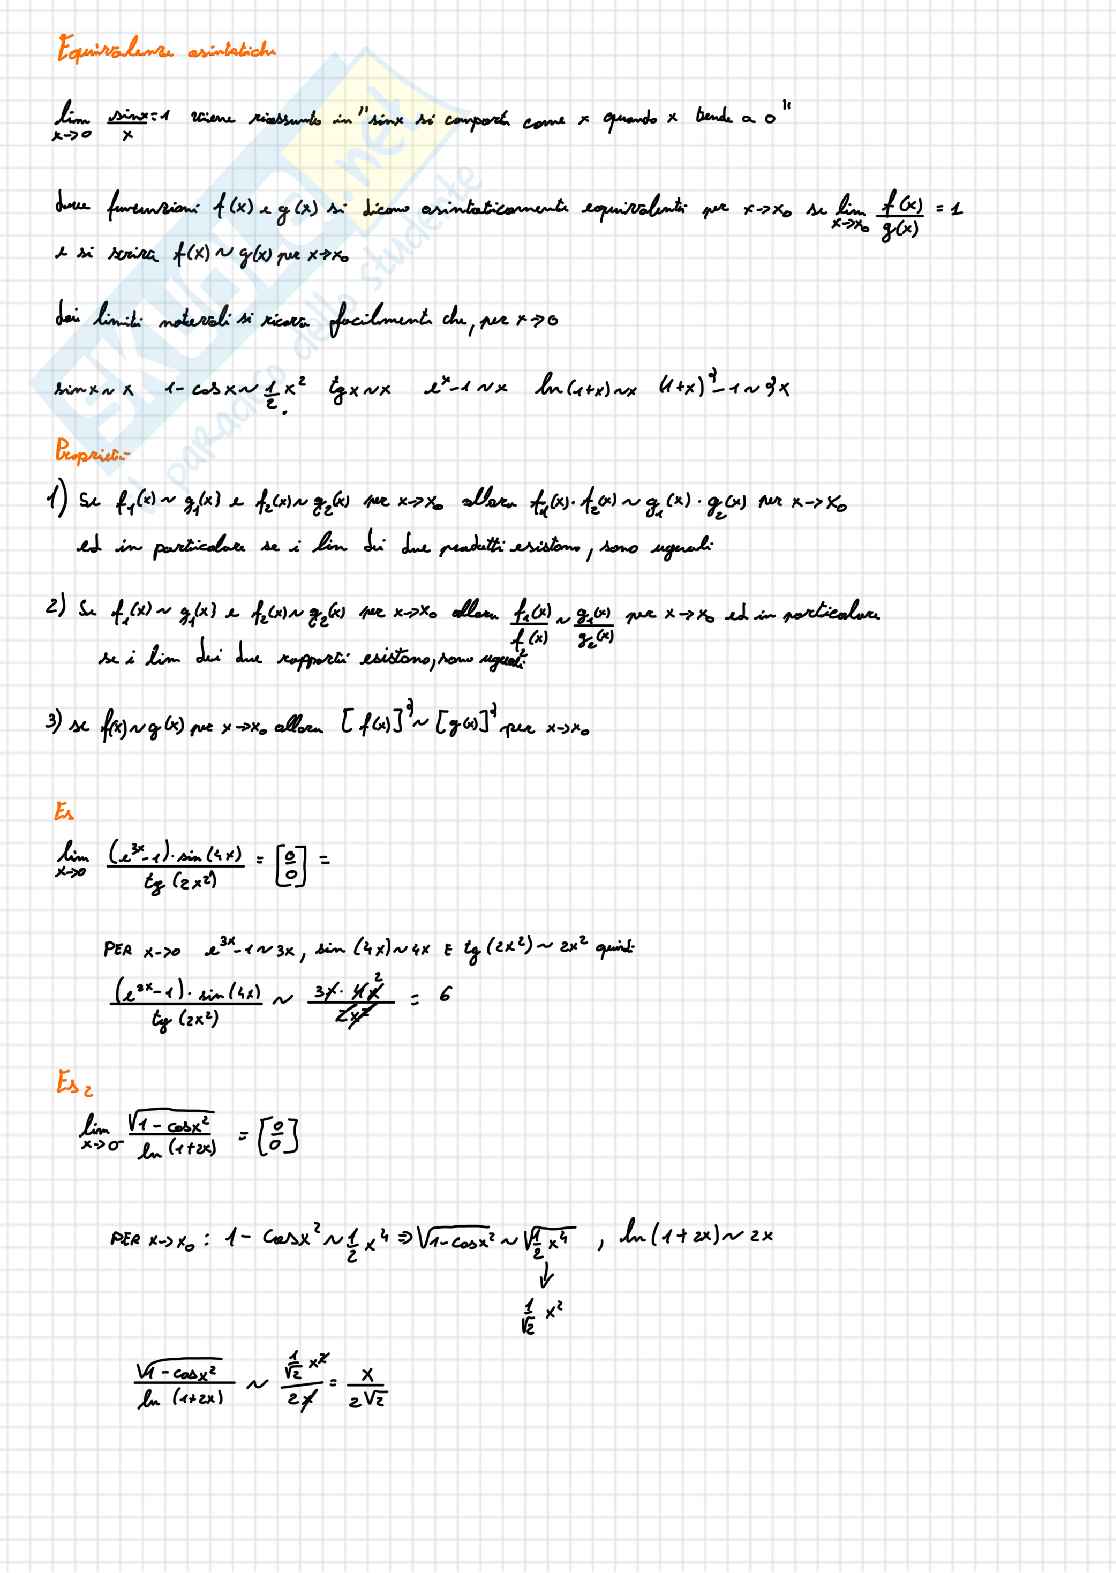 Equivalenze asintotiche
lim x→0 sinx/x = 1 viene riassunto in "sinx si comporta come x quando x tende a 0"
due funzioni f(x) e g(x) si dicono asintoticamente equivalenti per x→x₀ se lim x→x₀ f(x)/g(x) = 1
e si scrive f(x) ~ g(x) per x→x₀
dai limiti notevoli si ricava facilmente che, per x→0
sinx ~ x   1 - cosx ~ 1/2 x²   tgx ~ x   eˣ-1 ~ x   ln(1+x) ~ x   (1+x)^∂ - 1 ~ ∂x
Proprietà
1) Se f₁(x) ~ g₁(x) e f₂(x) ~ g₂(x) per x→x₀ allora f₁(x)·f₂(x) ~ g₁(x)·g₂(x) per x→x₀
ed in particolare se i lim dei due prodotti esistono, sono uguali
2) Se f₁(x) ~ g₁(x) e f₂(x) ~ g₂(x) per x→x₀ allora f₁(x)/f(x) ~ g₁(x)/g₂(x) per x→x₀ ed in particolare
se i lim dei due rapporti esistono, sono uguali
3) se f(x) ~ g(x) per x→x₀ allora [f(x)]^∂ ~ [g(x)]^∂ per x→x₀
Es
lim x→0 (e³ˣ-1)·sin(4x) / tg(2x²) = [0/0] =
PER x→0 e³ˣ-1 ~ 3x, sin(4x) ~ 4x E tg(2x²) ~ 2x² quindi
(e³ˣ-1)·sin(4x) / tg(2x²) ~ 3x·4x² / 2x² = 6
Es₂
lim x→0 √(1-cosx²) / ln(1+2x) = [0/0]
PER x→x₀ : 1 - cosx² ~ 1/2 x⁴ ⇒ √(1-cosx²) ~ √(1/2 x⁴) , ln(1+2x) ~ 2x
↓
1/√2 x²
√(1-cosx²) / ln(1+2x) ~ (1/√2 x²) / 2x = x / 2√2
SKUOLA.net
il paradiso dello studente